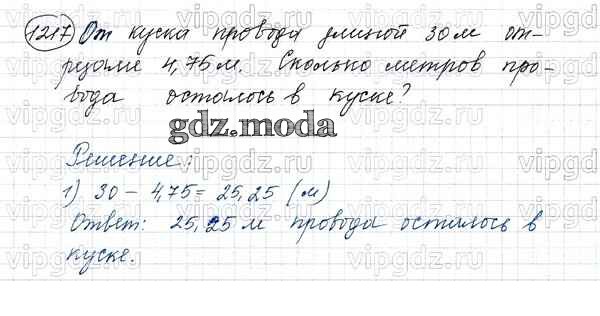 1217 От куска провода длиной 30 м от-
резали 4,75 м. Сколько метров про-
вода осталось в куске?
gdz.moda
Решение:
1) 30 - 4,75 = 25,25 (м)
Ответ: 25,25 м провода осталось в
куске.
vipgdz.ru